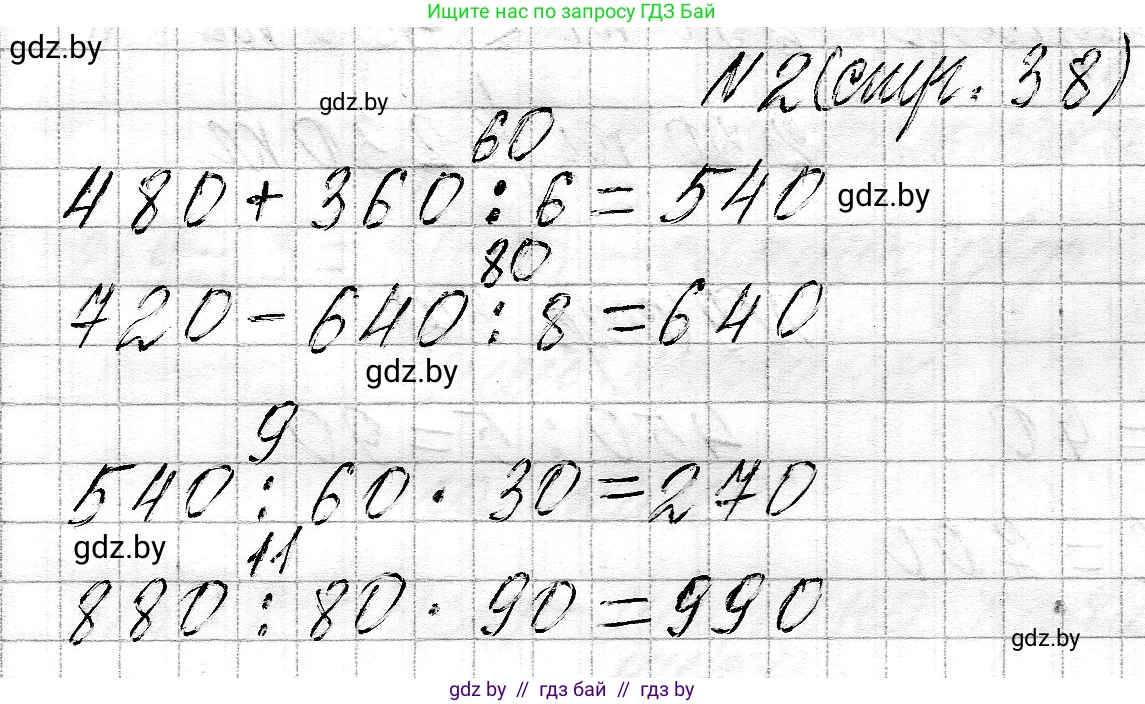 Ищите нас по запросу ГДЗ Бай
gdz.by
N2(стр. 38)
gdz.by
60
480 + 360 : 6 = 540
gdz.by
80
720 - 640 : 8 = 640
gdz.by
9
540 : 60 · 30 = 270
gdz.by
11
880 : 80 · 90 = 990
gdz.by
gdz by // гдз бай // гдз by